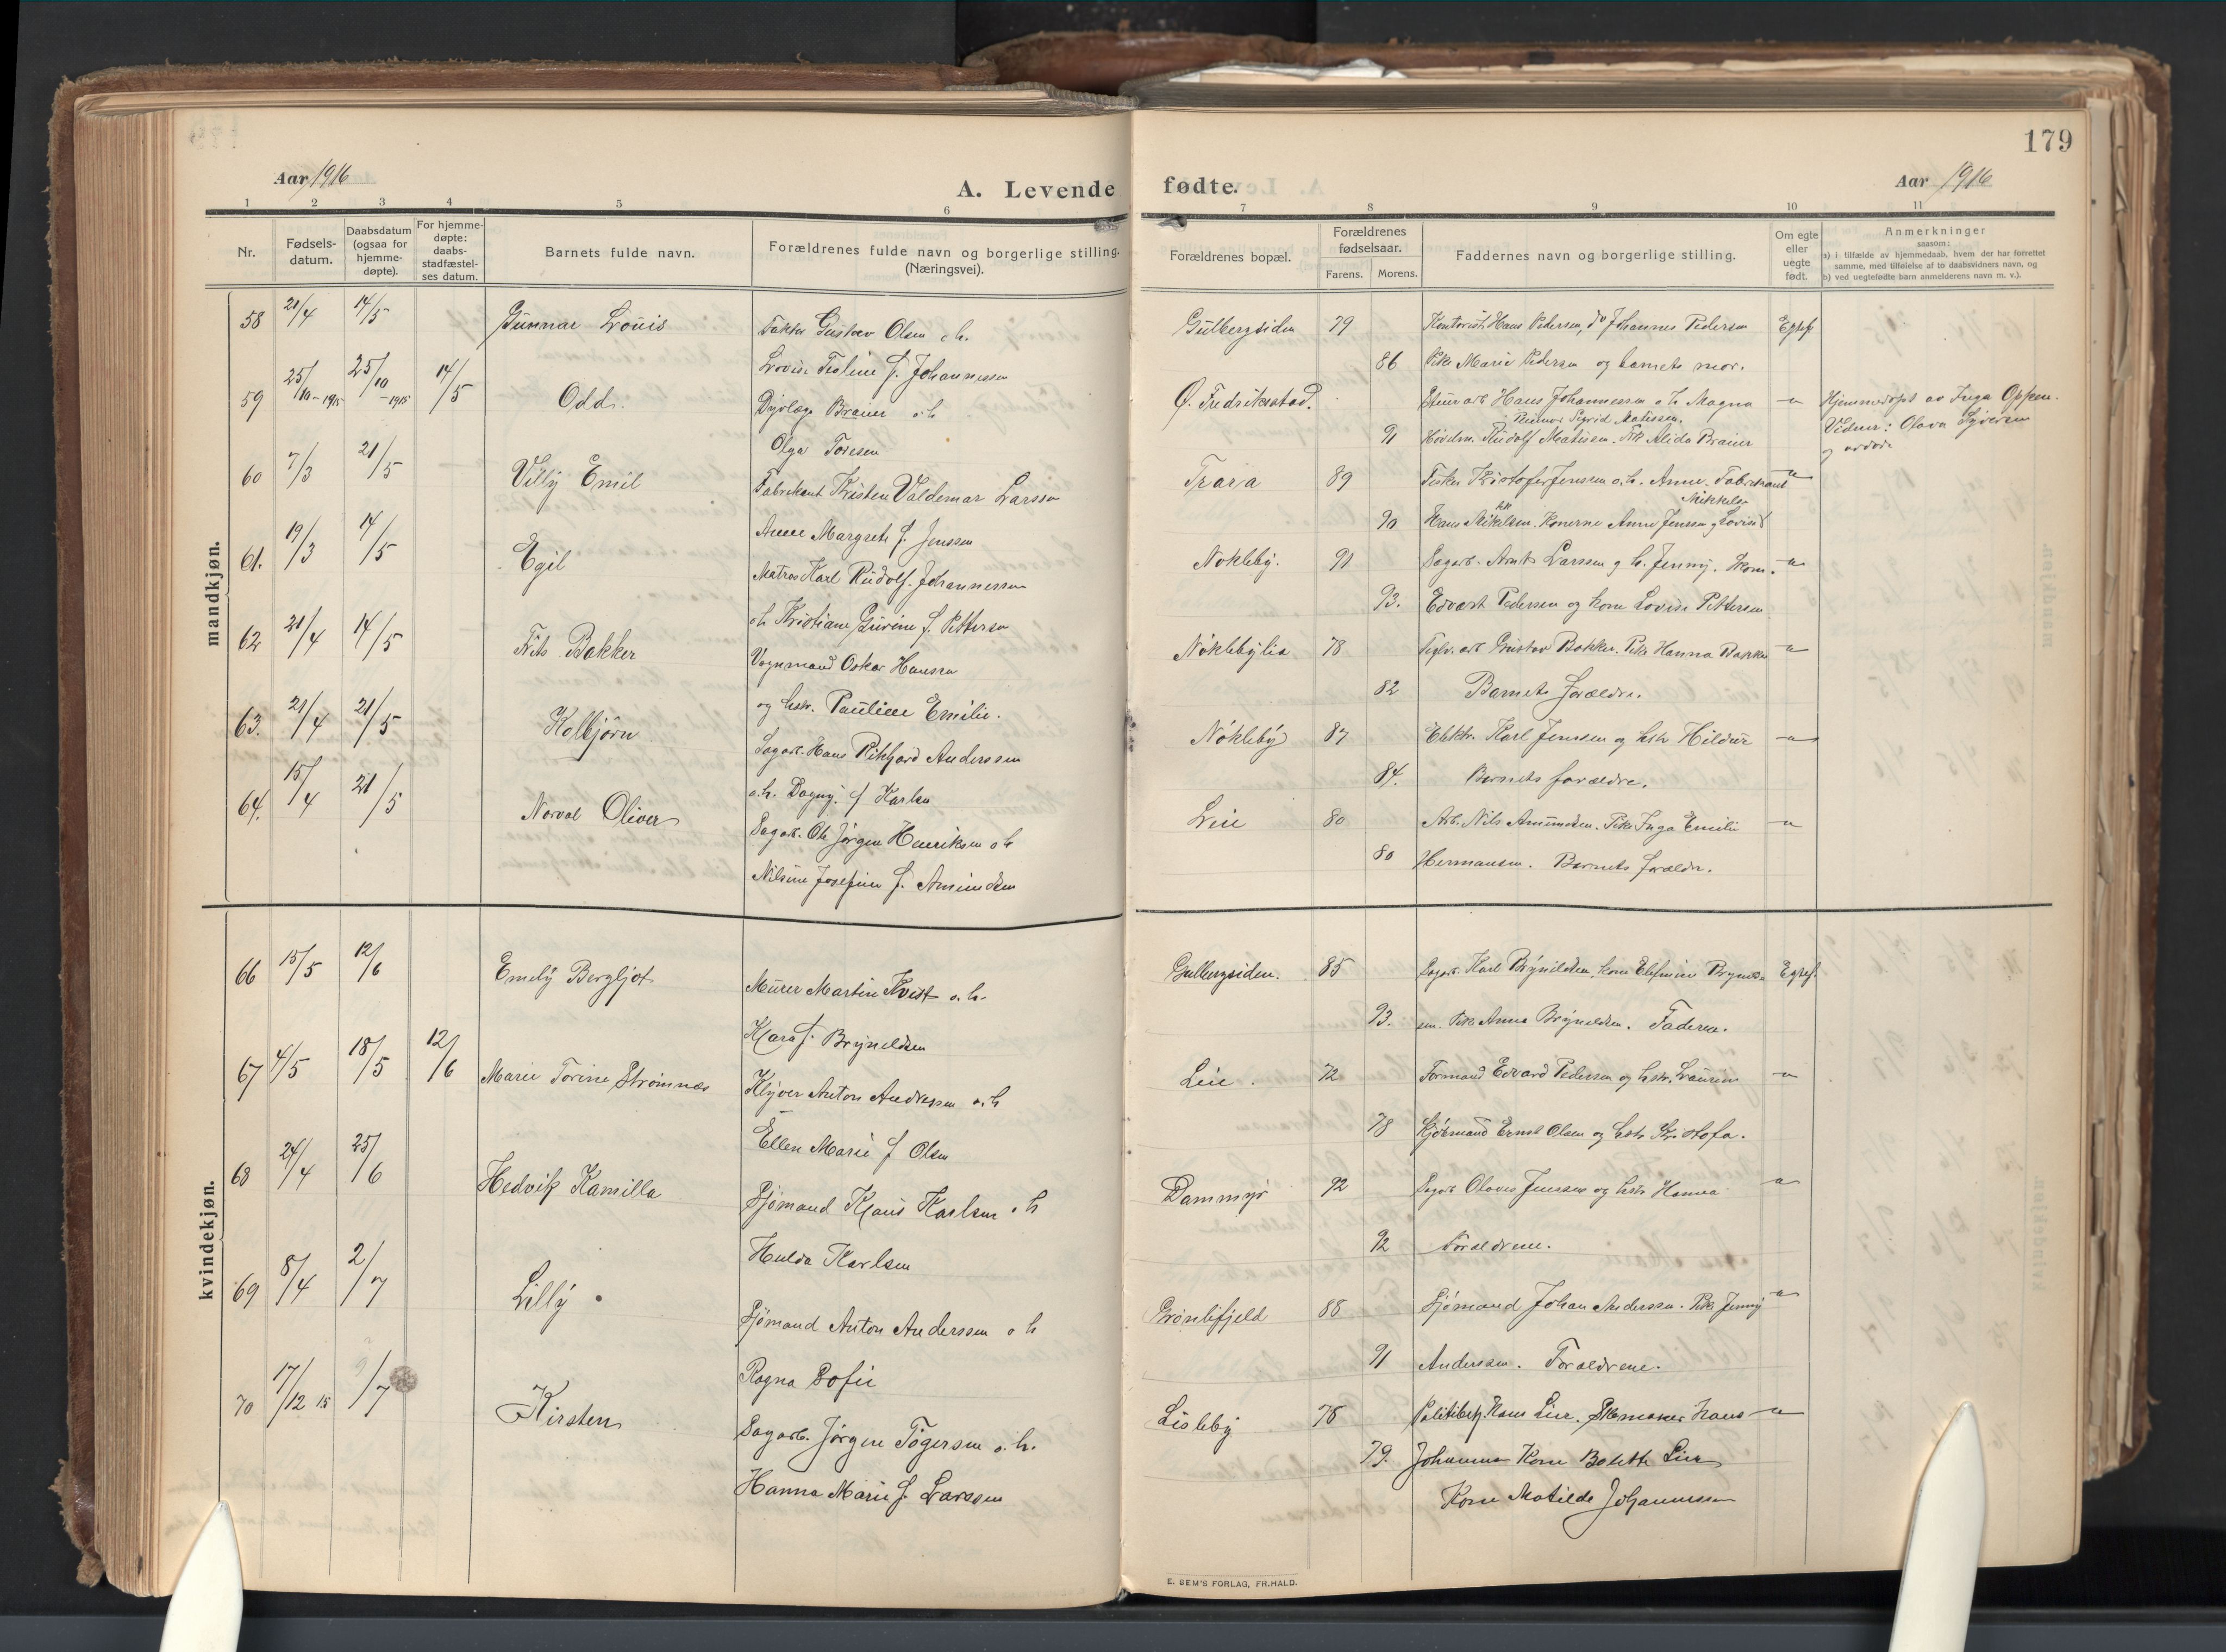 179
Aar 1916
A. Levende fødte.
Aar 1916
1 2 3 4 5 6 7 8 9 10 11
Nr.
Fødsels-
datum.
Daabsdatum
(ogsaa for
hjemme-
døpte).
For hjemme-
døpte:
daabs-
stadfæstel-
ses datum.
Barnets fulde navn.
Forældrenes fulde navn og borgerlige stilling.
(Næringsvei).
Forældrenes bopæl.
Forældrenes
fødselsaar.
Farens. Morens.
Faddernes navn og borgerlige stilling.
Om egte
eller
uegte
født.
Anmerkninger
saasom:
a) i tilfælde av hjemmedaab, hvem der har forrettet
samme, med tilføielse af to daabsvidners navn, og
b) ved uegtefødte barn anmelderens navn m. v.).
mandkjøn.
58 21/4 14/5 Gunnar Lovis Faktor Gustav Olsen o. h. Gulbergsiden 79 Kontorist Hans Pedersen, do Johannes Pedersen Egtef
Lovise Teoline f. Johannessen 86 Pike Marie Pedersen og barnets mor.
59 25/10-1915 25/10-1915 14/5 Odd. Dyrlæge Braier o. h Ø. Fredrikstad. Stuerarb Hans Johannessen o. h Magna -"- Hjemmedøpt av Inga Oppen.
Sigrid Matissen.
Olga Toresen 91 Høvelm. Rudolf Matissen. Frk Alida Braier Vidner: Olava Syversen
60 7/3 21/5 Villy Emil Fabrikant Kristen Valdemar Larssen Trara 89 Fisker Kristofer Jenssen o. h. Anne. Fabrikant -"-
Mikkelsen
Anne Margrete f. Jenssen 90 Hans Mikelsen. Konerne Anne Jenssen og Lovise
61. 19/3 14/5 Egil Matros Karl Rudolf Johannessen Nøkleby. 91 Sagarb. Larssen og h. Jenny. Kone. -"-
o h Kristiane Gurine f. Pettersen 93. Edvart Pedersen og kone Lovise Pettersen
62 21/4 14/5 Nils Bakker Vognmand Oskar Hansen Nøklebylia 78 Teglv. arb Gustav Bakker. Pike Hanna Bakke -"-
og hstr. Pauline Emilie. 82 Barnets forældre.
63. 21/4 21/5 Kolbjørn Sagarb. Hans Rikhard Anderssen Nøkleby 87 Elektr. Karl Jenssen og hstr Hildur -"-
o. h. Dagny f Karlsen 84. Barnets forældre.
64. 15/4 21/5 Norval Oliver Sagarb. Ole Jørgen Henriksen o h Leie 80 Arb. Nils Amundsen. Pike Inga Emilie -"-
Nilsine Josefine f. Amundsen 80 Hermansen. Barnets forældre.
kvindekjøn.
66 15/5 12/6 Emely Bergljot Murer Martin Kvist o. h. Gulbergsiden. 85 Sagarb. Karl Brynildsen, kone Elefmine Brynild Egtef.
Klara f. Bryneldsen 93. sen. Pike Anna Bryneldsen. Faderen.
67 4/5 18/5 12/6 Marie Torine Strømnæs Kløver Anton Andressen o. h Leie. 72 Formand Edvard Pedersen og hstr. Laurine -"-
Ellen Marie f Olsen 78 Kjøbmand Ernst Olsen og hstr Kristofa.
68 24/4 25/6 Hedvik Kamilla Sjømand Klaus Karlsen o h Dammyr 92 Sagarb Olaves Jenssen og hstr Hanna -"-
Hulda Karlsen 92 Foreldrene.
69 8/4 2/7 Lilly Sjømand Anton Anderssen o h Grønlifjeld 88 Sjømand Johan Anderssen. Pike Jenny -"-
Ragna Sofie 91 Anderssen. Foreldrene.
70 17/12 15 9/7 Kirsten Sagarb. Jørgen Togersen o. h. Lisleby 78 Politibetj. Hans Lier. Skomaker Hans -"-
Hanna Marie f. Larssen 79. Johannes Kone Bolette Lier
Kone Matilde Johannessen
E. SEM'S FORLAG, FR.HALD.